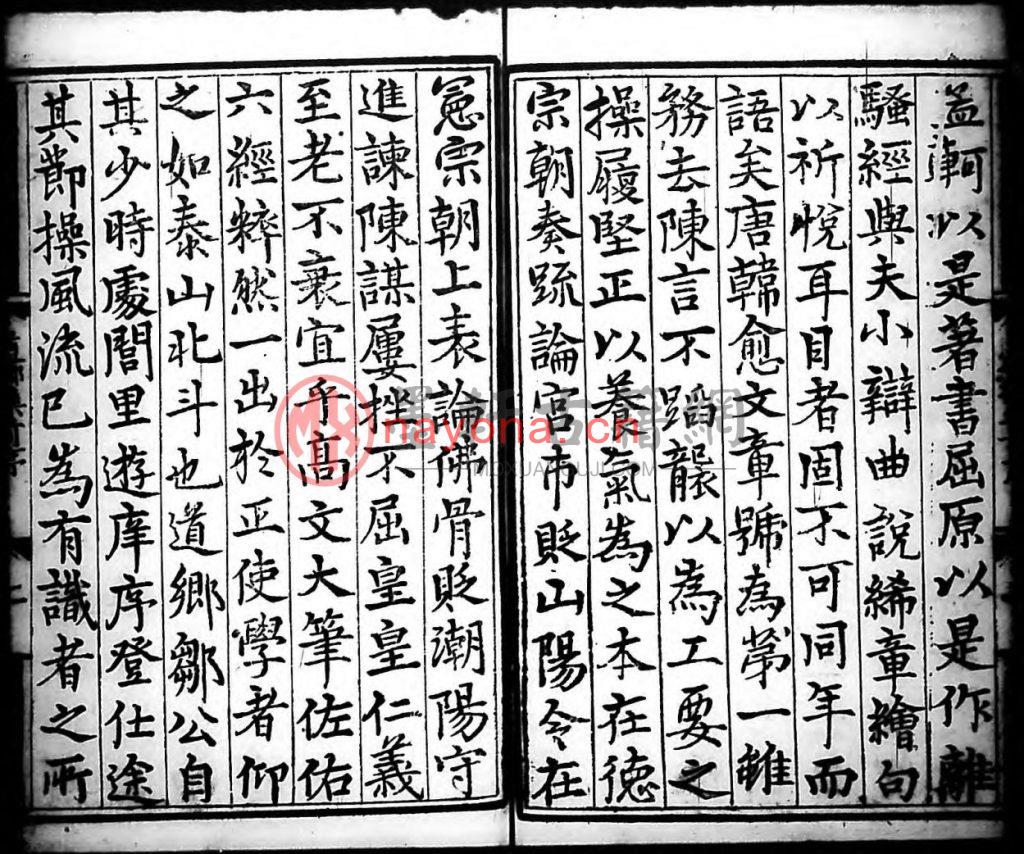 孟軻以是著書屈原以是作離
騷經與夫小辯曲説絺章繪句
以祈悅耳目者固不可同年而
語矣唐韓愈文章號為第一雖
務去陳言不蹈襲以為工要之
操履堅正以養氣為之本在德
宗朝奏疏論宮市貶山陽令在
憲宗朝上表論佛骨貶潮陽守
進諫陳謀屢挫不屈皇皇仁義
至老不衰宜乎高文大筆佐佑
六經粹然一出於正使學者仰
之如泰山北斗也道鄉鄒公自
其少時處閭里遊庠序登仕途
其節操風流已為有識者之所
nayona.cn